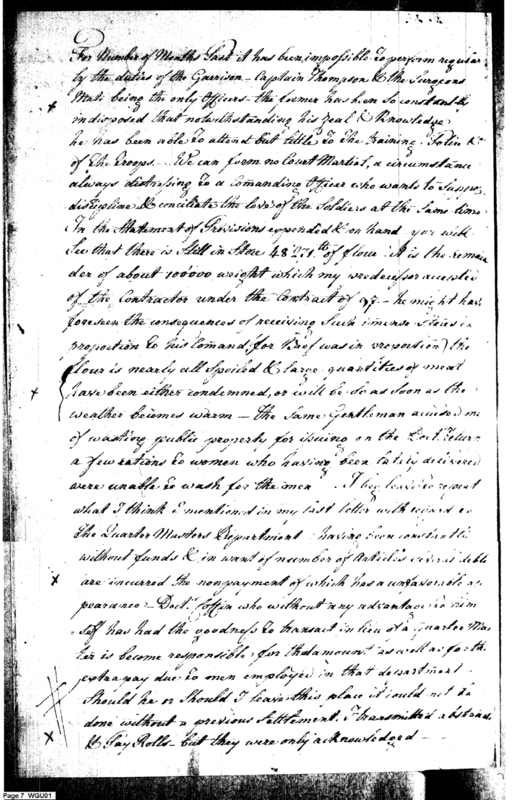 For Number of Months Past it has been impossible to perform regular
by the duties of the Garrison – Captain Thompson & the Surgeons
Mate being the only Officers – the former has been so constantly
indisposed that notwithstanding his zeal & Knowledge
he has been able to attend but little to The training, Police &c
of the troops – We can form no Court Martial, a circumstance
always distressing to a Comanding Officer who wants to
discipline & conciliate the love of the Soldiers at the Same time
In the Statement of Provisions expended & on hand you will
See that there is Still in Store 48271 lb of flour – It is the remain
der of about 100000 weight which my predecessor accepted
of the Contractor under the Contract of 97 – he might have
foreseen the consequences of receiving Such imense Stores in
proportion to his Comand, for Beef was in proportion) the
flour is nearly all Spoiled & large quantities of meat
have been either condemned, or will be So as soon as the
weather becomes warm – The Same Gentleman accused me
of wasting public property for issuing on the Doctr. return
a few rations to women who having been lately delivered
were unable to wash for the men – I beg leave to repeat
what I think I mentioned in my last letter with regard to
The Quarter Masters Department – having been constantly
without funds & in want of number of Articles several debts
are incurred the nonpayment of which has a unfavorable ap
pearance – Doctr. Coffin who without any advantage to him
Self has had the goodness to transact in lieu of a Quarter Mas
ter is become responsible for the amount as well as for the
extra pay due to men employed in that department –
Should he or Should I leave this place it could not be
done without a previous Settlement. I transmitted abstracts
& Pay Rolls – but they were only acknowledged –
Page 7 WGU01